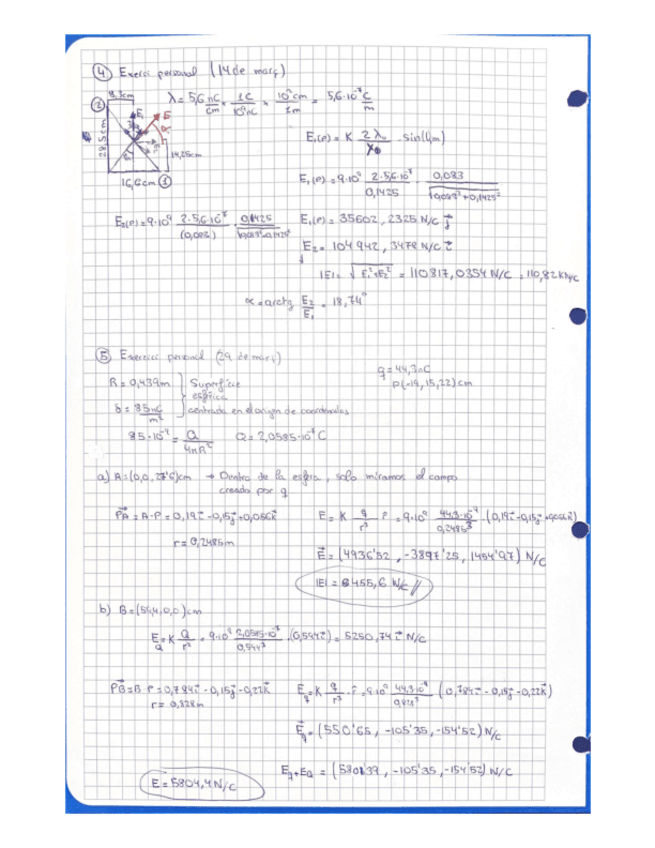 ④ Exercici personal (14 de març)
8,3cm
② λ = 5,6 nC/cm × 1C/10⁹nC × 10²cm/1m = 5,6·10⁻⁷ C/m
28,5cm
14,25cm
16,6cm ①
E₁(P) = K 2λ₀/X₀ · sin(φm)
E₁(P) = 9·10⁹ 2·5,6·10⁻⁷/0,1425 · 0,083/√0,083²+0,1425²
E₂(P) = 9·10⁹ 2·5,6·10⁻⁷/(0,083) · 0,1425/√0,083²+0,1425²
E₁(P) = 35602,2325 N/C j
E₂ = 104942,3478 N/C i
|E| = √E₁²+E₂² = 110817,0354 N/C = 110,82 kN/C
α = arctg E₂/E₁ = 18,74°
⑤ Exercici personal (29 de març)
q = 44,3nC
P(-19,15,22)cm
R = 0,439m
Superficie
esférica
centrada en el origen de coordenadas
δ = 85nC/m²
85·10⁻⁹ = Q/4πR² Q = 2,0585·10⁻⁷ C
a) A = (0,0,27'6)cm → Dentro de la esfera, solo miramos el campo
creado por q
PA = A-P = 0,19i - 0,15j + 0,056k
r = 0,2485m
E = K q/r³ · r = 9·10⁹ 44,3·10⁻⁹/0,2485³ · (0,19i - 0,15j + 0,056k)
E = (4936'52, -3897'25, 1454'97) N/C
|E| = 6455,6 N/C //
b) B = (59,4,0,0)cm
E_Q = K Q/r² = 9·10⁹ 2,0585·10⁻⁷/0,594³ · (0,594i) = 5250,74 i N/C
PB = B-P = 0,784i - 0,15j - 0,22k
r = 0,828m
E_q = K q/r³ · r = 9·10⁹ 44,3·10⁻⁹/0,828³ (0,784i - 0,15j - 0,22k)
E_q = (550'65, -105'35, -154'52) N/C
E_q + E_Q = (5801'39, -105'35, -154'52) N/C
E = 5804,4 N/C